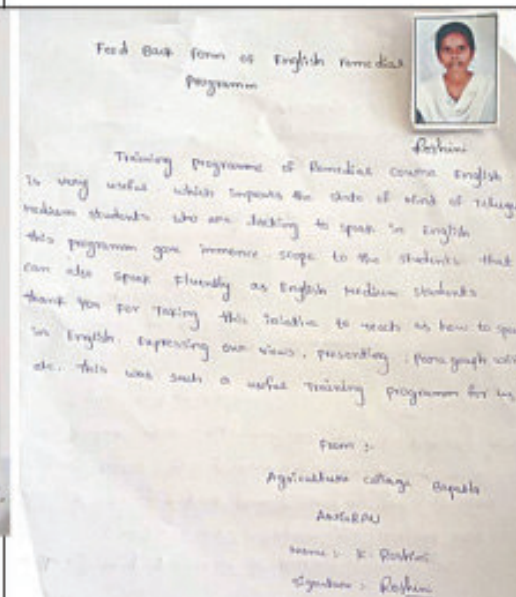 Feed Back form of English remedial
programm
Roshini
Training programme of Remedial course English
is very useful which impouts the state of mind of Telugu
medium students who are lacking to speak in English
this programm gave immence scope to the students that
can also speak Fluently as English medium students
thank you for Taking this iniative to teach us how to spe
in English. Expressing our views, presenting, paragraph wri
etc. this was such a useful Training programm for us
From :-
Agriculture college Bapatla
ANGRAU
Name :- K. Roshini
Signature : Roshini